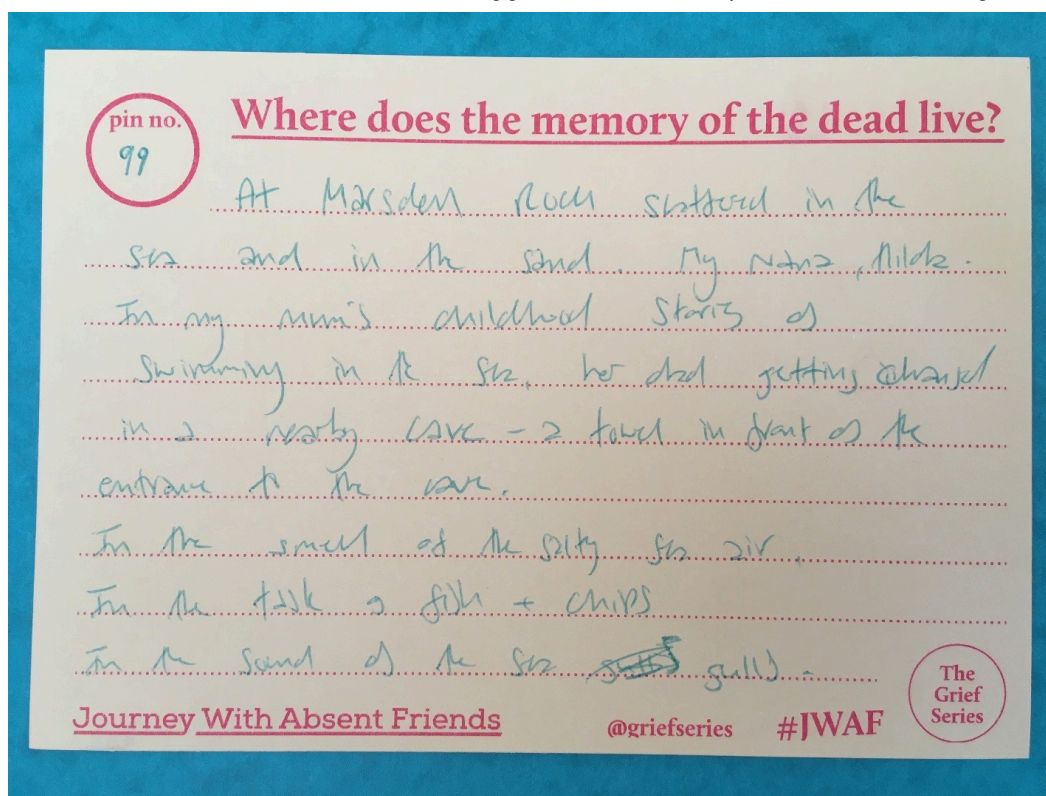 pin no.
99
Where does the memory of the dead live?
At Marsden Rock scattered in the
sea and in the sand. My Nana, Hilda.
In my mum's childhood stories of
swimming in the sea, her dad getting changed
in a nearby cave - a towel in front of the
entrance to the cave.
In the smell of the salty sea air.
In the taste of fish + chips
In the sound of the sea gulls.
Journey With Absent Friends
@griefseries
#JWAF
The
Grief
Series